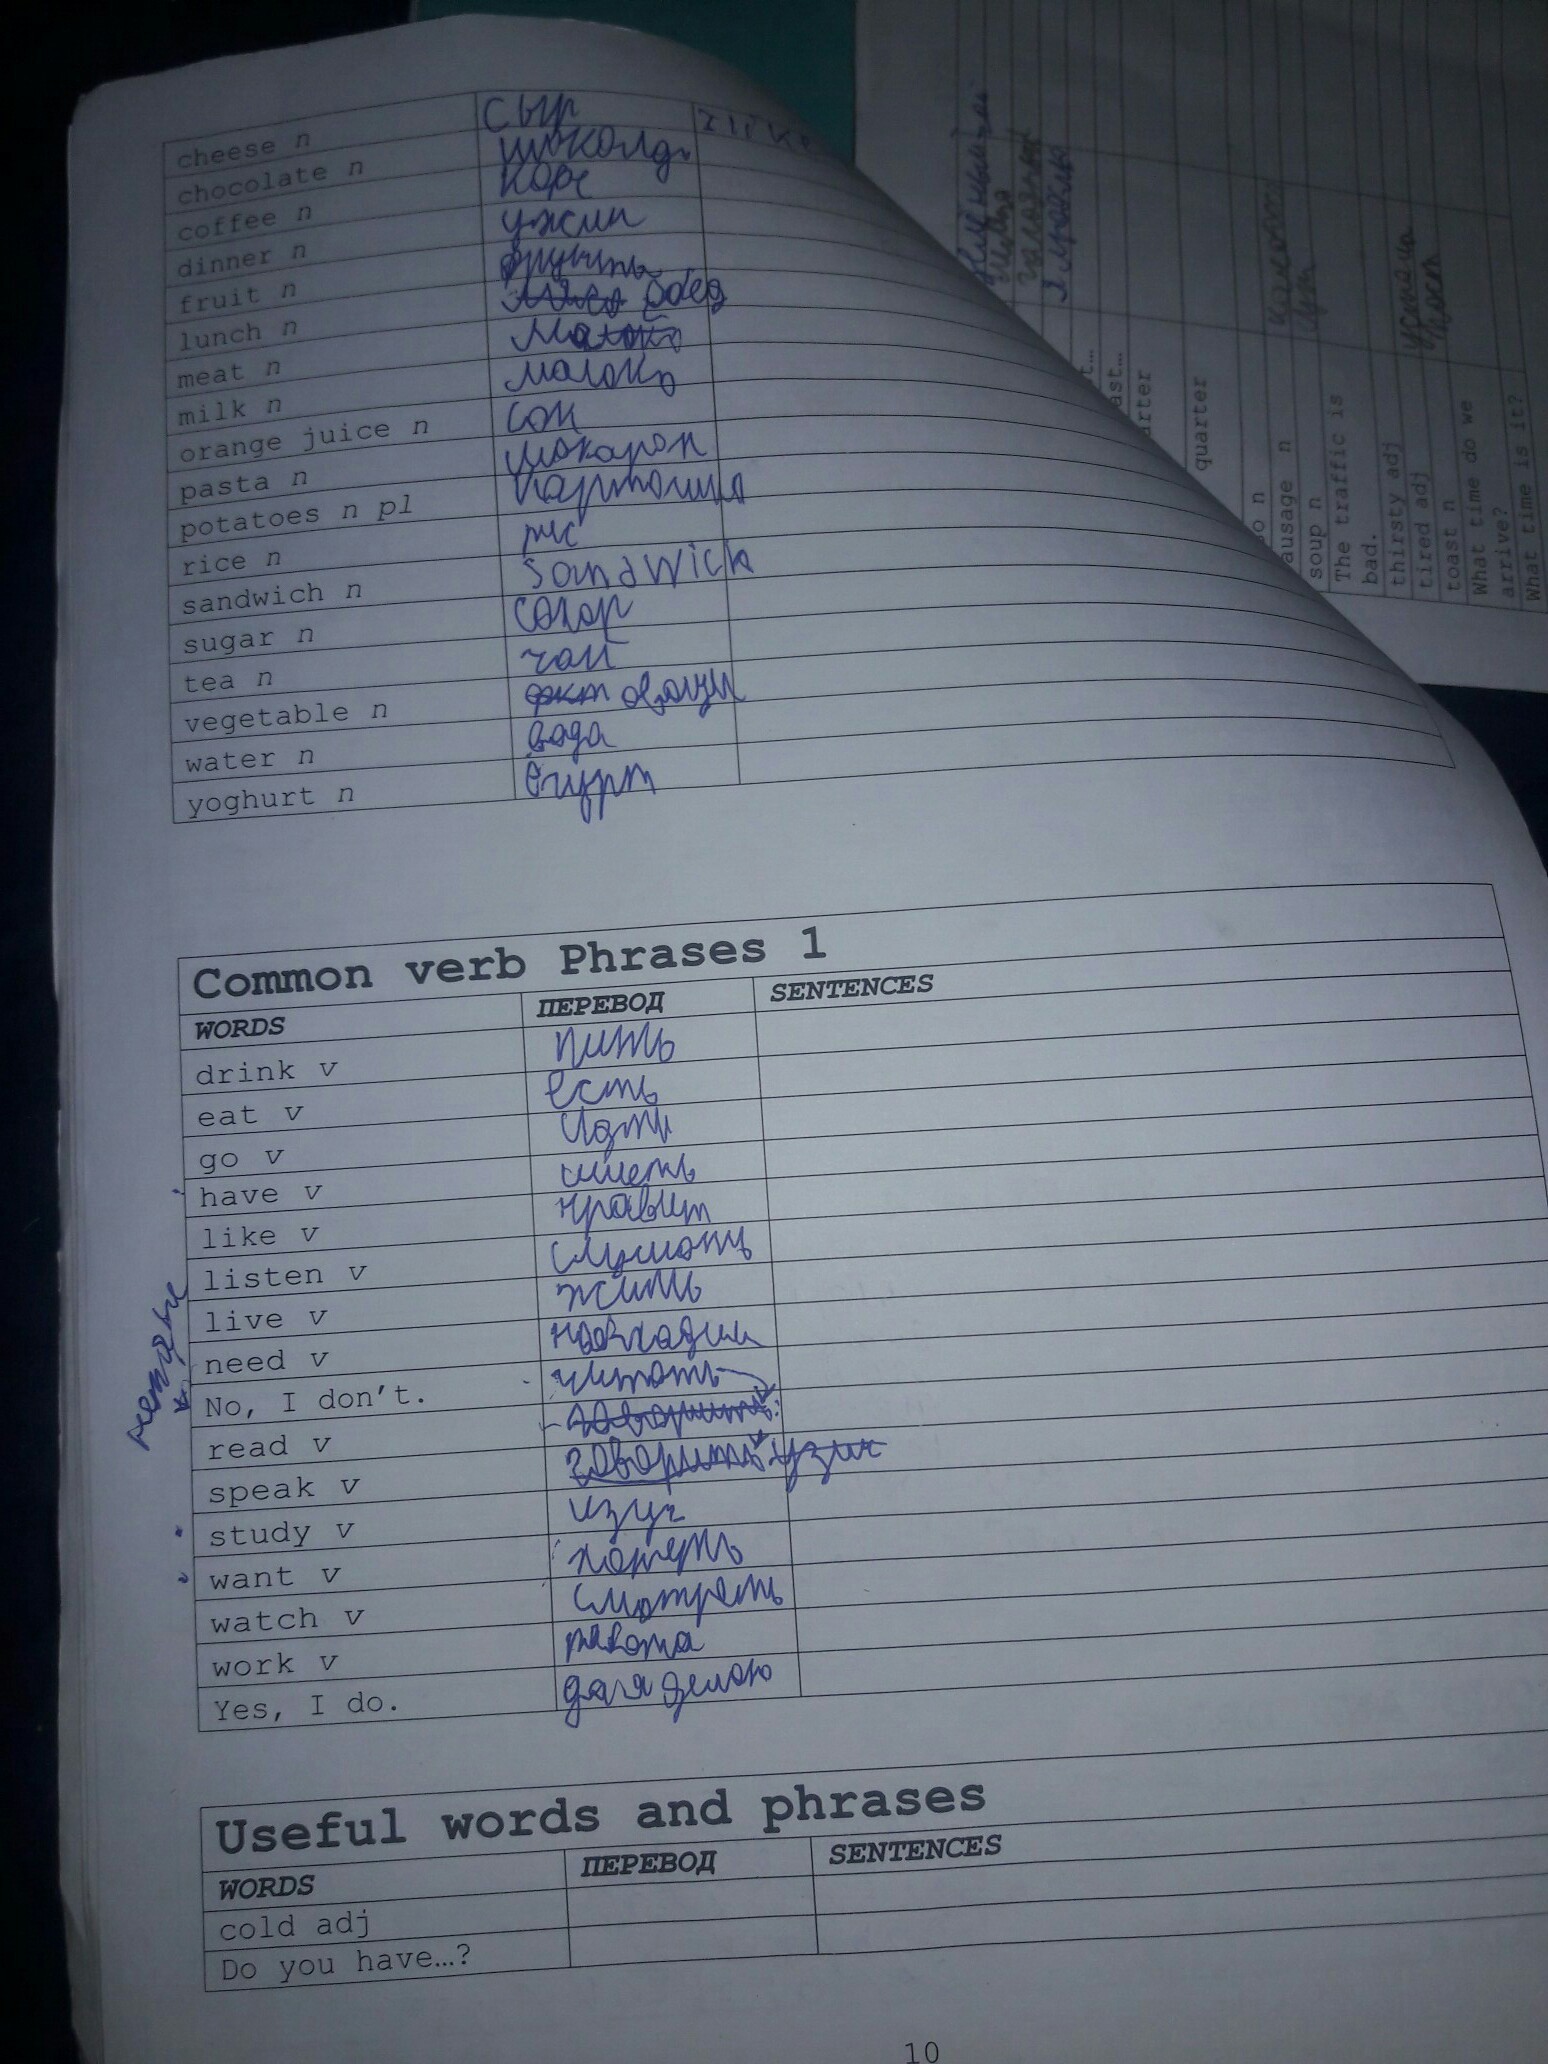 cheese n сыр
chocolate n
coffee n кофе
dinner n ужин
fruit n фрукты
lunch n обед
meat n
milk n малоко
orange juice n сок
pasta n макарон
potatoes n pl картошка
rice n рис
sandwich n sandwich
sugar n сахар
tea n чай
vegetable n овощи
water n вода
yoghurt n ёгурт
Common verb Phrases 1
WORDS ПЕРЕВОД SENTENCES
drink v пить
eat v есть
go v идти
have v иметь
like v нравит
listen v слушать
live v жить
need v
No, I don't. читать
read v говорить
speak v говорить
study v изуч
want v хотеть
watch v смотреть
work v работа
Yes, I do. да я делаю
Useful words and phrases
WORDS ПЕРЕВОД SENTENCES
cold adj
Do you have…?
10
quarter
quarter
soup n суп
The traffic is
bad.
thirsty adj
tired adj
toast n тост
What time do we
arrive?
What time is it?